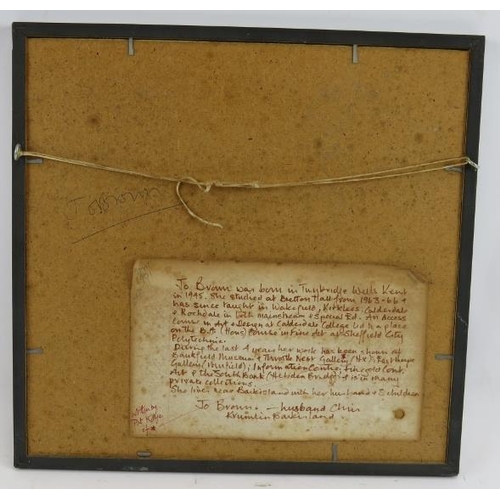 Jo Brown was born in Tunbridge Wells Kent
in 1945. She studied at Bretton Hall from 1963-66 &
has since taught in Wakefield, Kirklees, Calderdale
& Rochdale in both mainstream & Special Ed. An Access
course in Art & Design at Calderdale College led to a place
on the BA (Hons) Course in Fine Art at Sheffield City
Polytechnic.
During the last 4 years her work has been shown at
Bankfield Museum & Throstle Nest Gallery /Hx;
Gallery /Mirfield; Information Centre,
Art & The South Bank /Hebden Bridge & is in many
private collections.
She lives near Barkisland with her husband & children
Jo Brown - husband Chris
Krumlin Barkisland